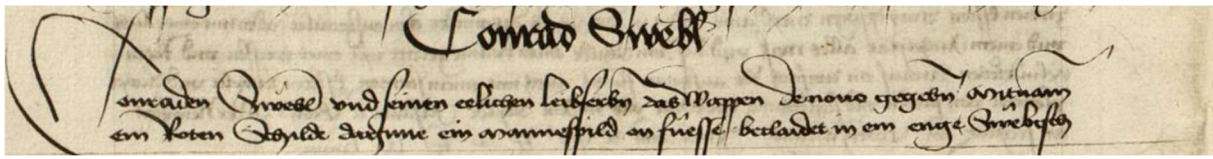 Conrad Swebl
Conraden Swebl und seinen eelichen leibserbn das Wappen denovo gegebn mitnam
ein Roten Schilde darynne ein mannespild on fuesse beclaidet in ein enge Swebisch